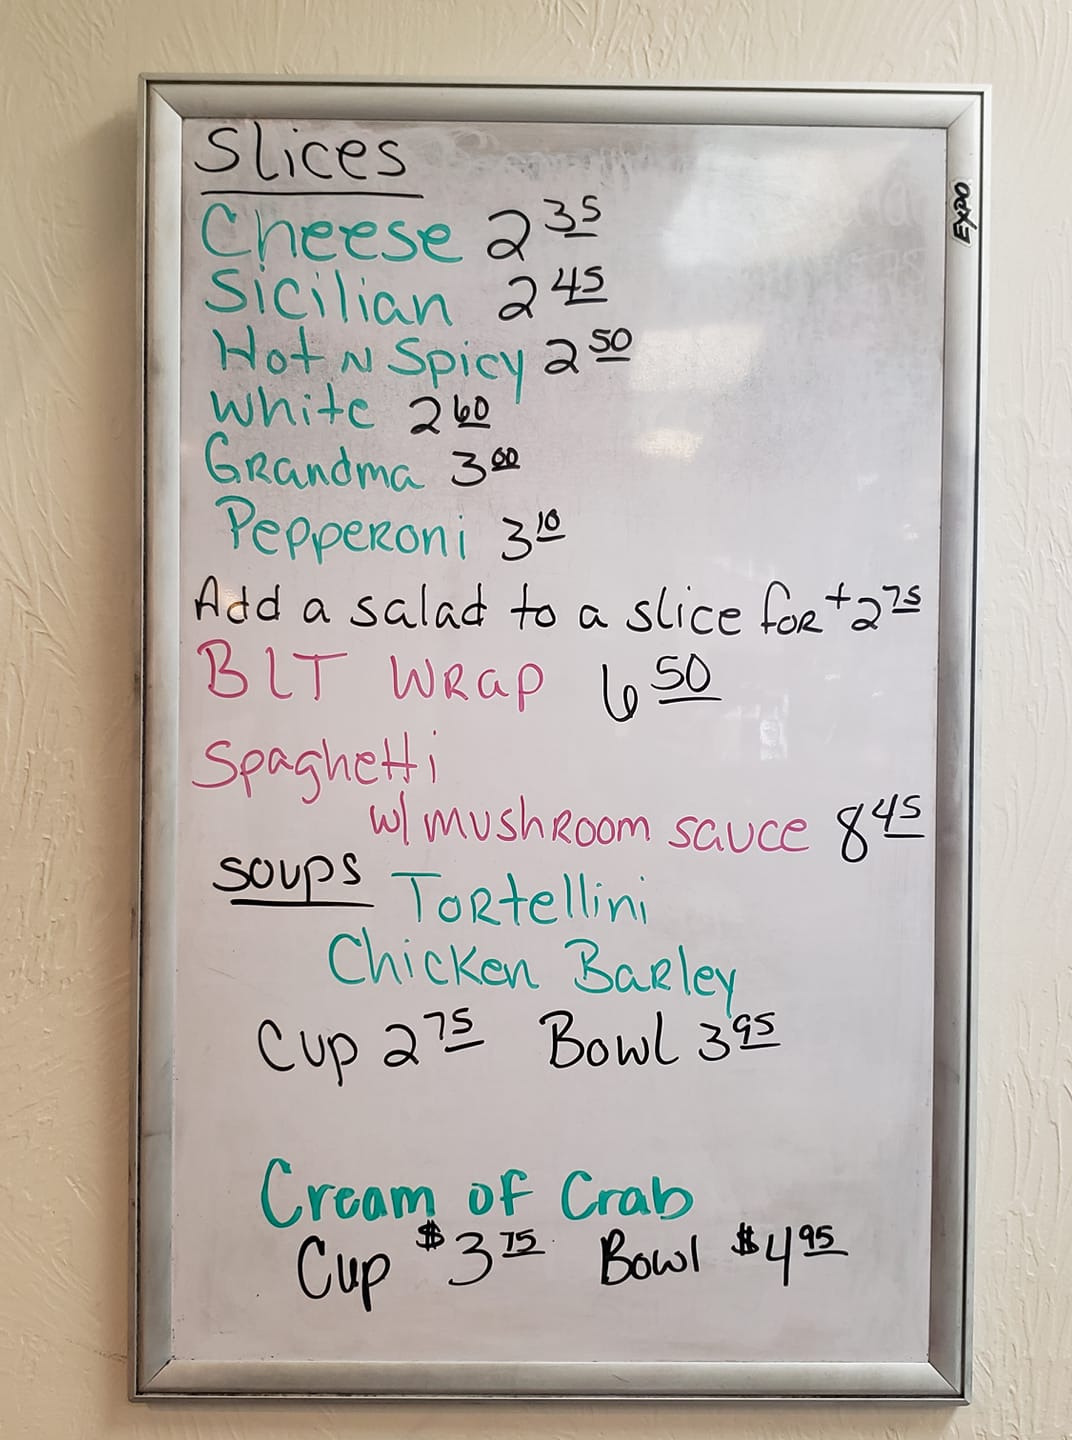 Slices
Cheese 2 35
Sicilian 2 45
Hot N Spicy 2 50
White 2 60
Grandma 3 00
Pepperoni 3 10
Add a salad to a slice for +2 75
BLT Wrap 6 50
Spaghetti
w/ mushroom sauce 8 45
Soups Tortellini
Chicken Barley
Cup 2 75 Bowl 3 95
Cream of Crab
Cup $3 75 Bowl $4 95
EXPO